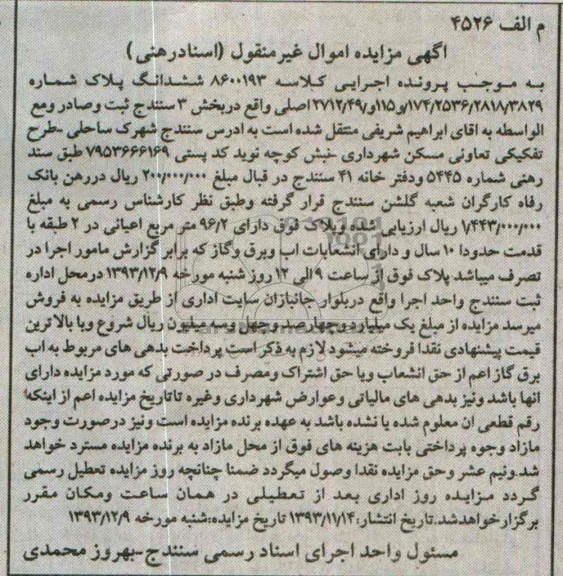 م الف ۴۵۲۶
آگهی مزایده اموال غیرمنقول (اسنادرهنی)
به موجب پرونده اجرایی کلاسه ۸۶۰۰۱۹۳ ششدانگ پلاک شماره
۱۷۴/۲۵۳۶/۲۸۱۸/۳۸۲۹و۱۱۵و۲۷۱۲/۴۹/ اصلی واقع دربخش ۳ سنندج ثبت وصادر ومع
الواسطه به اقای ابراهیم شریفی منتقل شده است به ادرس سنندج شهرک ساحلی -طرح
تفکیکی تعاونی مسکن شهرداری -نبش کوچه نوید کد پستی ۷۹۵۳۶۶۶۱۶۹ طبق سند
رهنی شماره ۵۴۴۵ ودفتر خانه ۴۱ سنندج در قبال مبلغ ۲۰۰/۰۰۰/۰۰۰ ریال دررهن بانک
رفاه کارگران شعبه گلشن سنندج قرار گرفته وطبق نظر کارشناس رسمی به مبلغ
۱/۴۴۳/۰۰۰/۰۰۰ ریال ارزیابی شده وپلاک فوق دارای ۹۶/۲ متر مربع اعیانی در ۲ طبقه با
قدمت حدودا ۱۰ سال و دارای انشعابات اب وبرق وگاز که برابر گزارش مامور اجرا در
تصرف میباشد پلاک فوق از ساعت ۹ الی ۱۲ روز شنبه مورخه ۱۳۹۳/۱۲/۹ درمحل اداره
ثبت سنندج واحد اجرا واقع دربلوار جانبازان سایت اداری از طریق مزایده به فروش
میرسد مزایده از مبلغ یک میلیارد وچهارصد وچهل وسه میلیون ریال شروع وبا بالاترین
قیمت پیشنهادی نقدا فروخته میشود لازم به ذکر است پرداخت بدهی های مربوط به اب
برق گاز اعم از حق انشعاب ویا حق اشتراک ومصرف در صورتی که مورد مزایده دارای
انها باشد ونیز بدهی های مالیاتی وعوارض شهرداری وغیره تاتاریخ مزایده اعم از اینکه
رقم قطعی ان معلوم شده یا نشده باشد به عهده برنده مزایده است ونیز درصورت وجود
مازاد وجوه پرداختی بابت هزینه های فوق از محل مازاد به برنده مزایده مسترد خواهد
شد.ونیم عشر وحق مزایده نقدا وصول میگردد ضمنا چنانچه روز مزایده تعطیل رسمی
گردد مزایده روز اداری بعد از تعطیلی در همان ساعت ومکان مقرر
برگزارخواهدشد.تاریخ انتشار:۱۳۹۳/۱۱/۱۴ تاریخ مزایده:شنبه مورخه ۱۳۹۳/۱۲/۹
مسئول واحد اجرای اسناد رسمی سنندج-بهروز محمدی